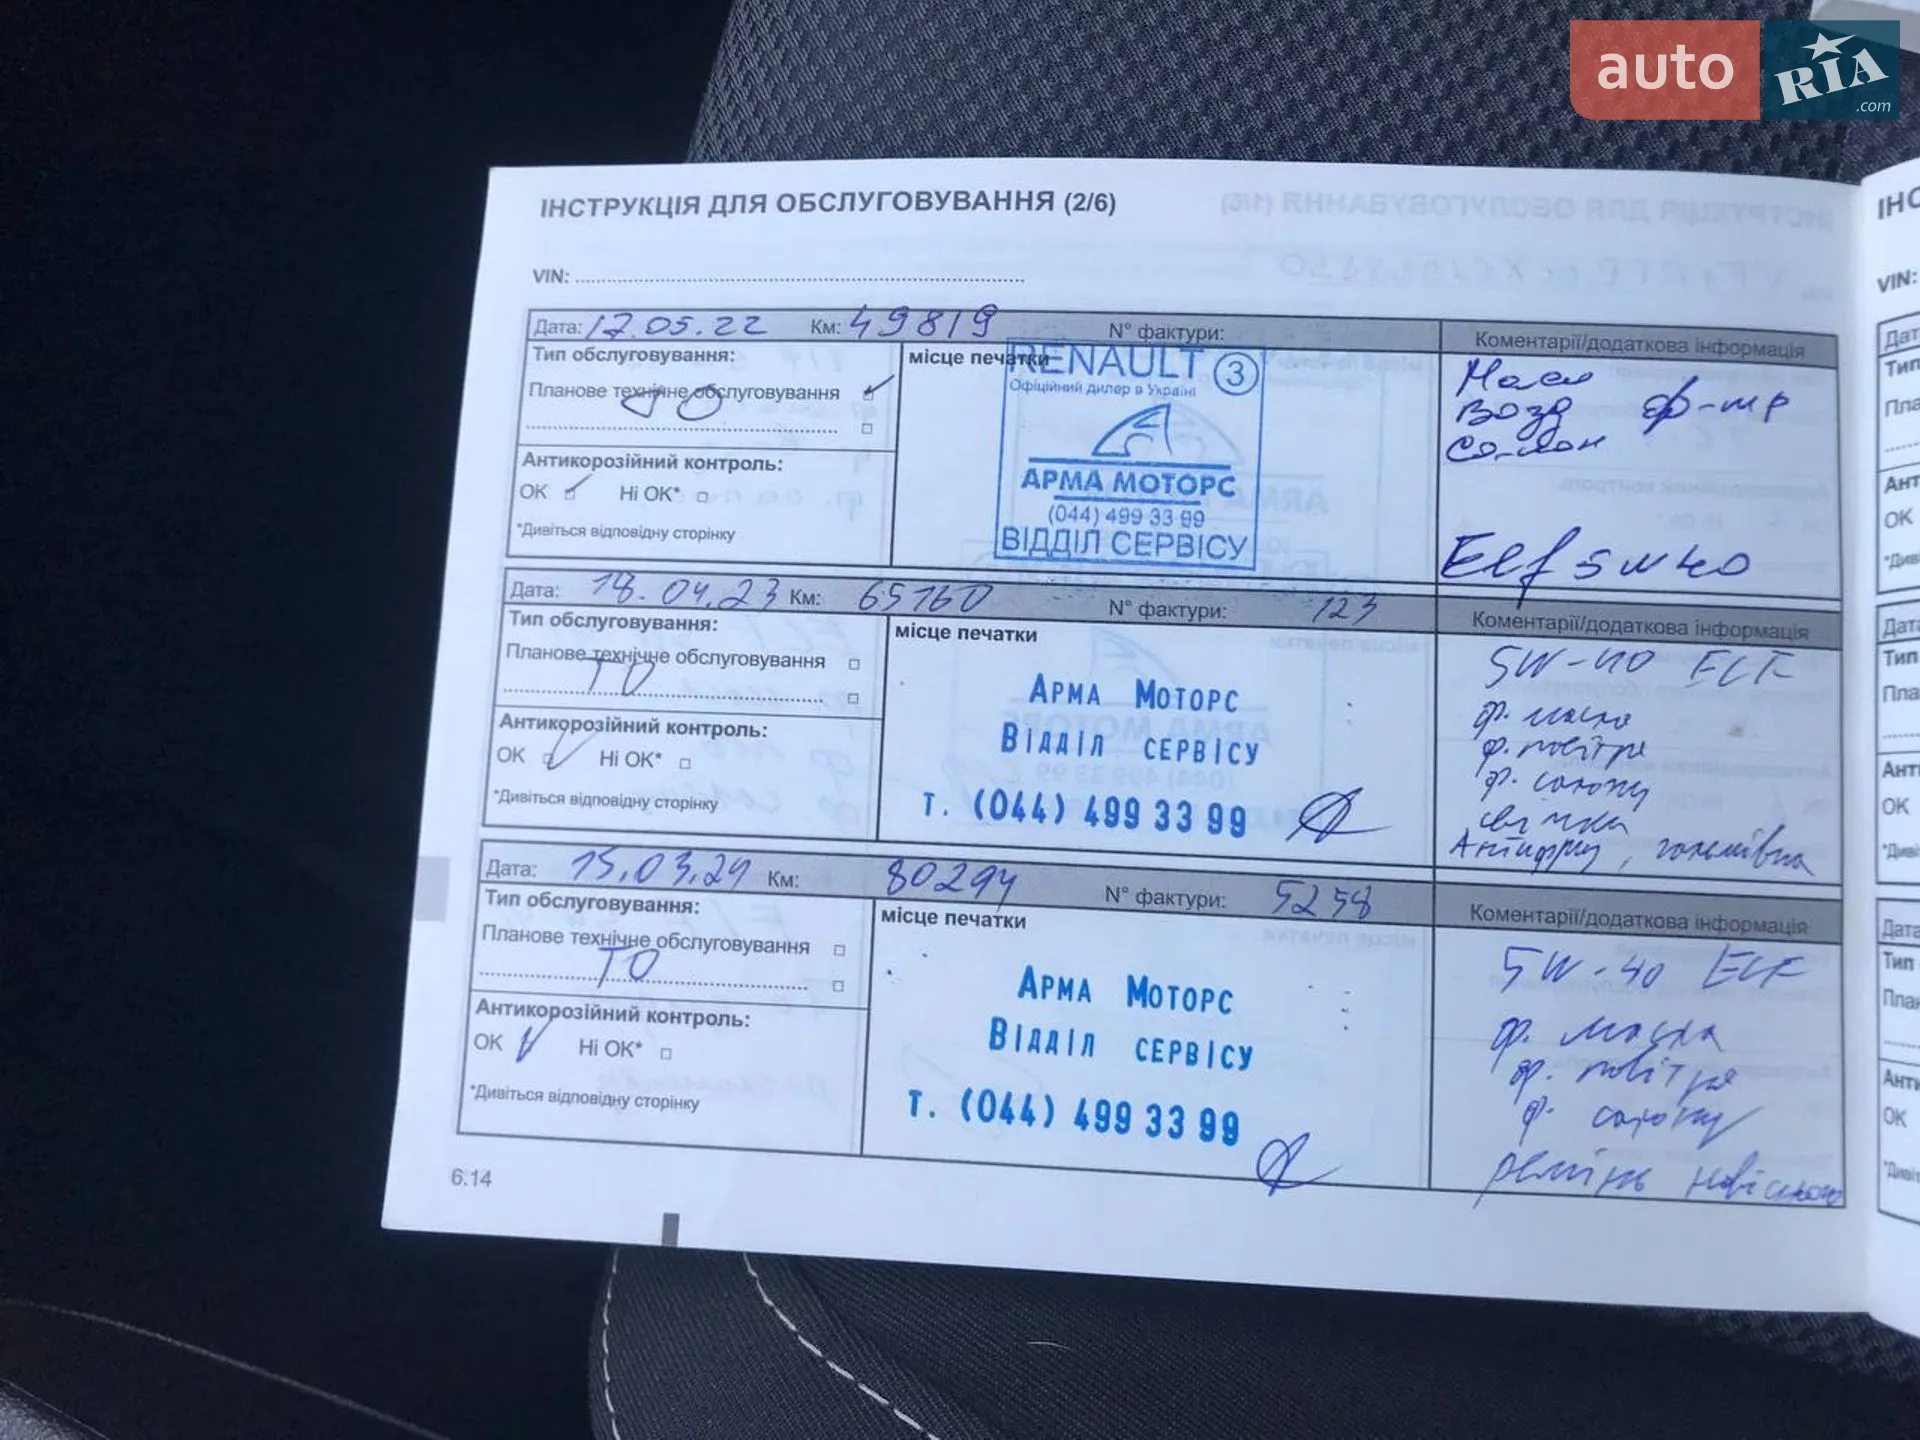 auto RIA.com
ІНСТРУКЦІЯ ДЛЯ ОБСЛУГОВУВАННЯ (2/6)
VIN:
Дата: 17.05.22 Км: 49819 N° фактури:
Коментарії/додаткова інформація
Тип обслуговування:
Планове технічне обслуговування
ТО
Антикорозійний контроль:
ОК Ні ОК*
*Дивіться відповідну сторінку
місце печатки
RENAULT 3
Офіційний дилер в Україні
АРМА МОТОРС
(044) 499 33 99
ВІДДІЛ СЕРВІСУ
Масл
Возд ф-тр
Салон
Elf 5W40
Дата: 18.04.23 Км: 65160 N° фактури: 123
Коментарії/додаткова інформація
Тип обслуговування:
Планове технічне обслуговування
ТО
Антикорозійний контроль:
ОК Ні ОК*
*Дивіться відповідну сторінку
місце печатки
Арма Моторс
Відділ сервісу
т. (044) 499 33 99
5W-40 ELF
ф. масла
ф. повітря
ф. салону
свічки
Антифриз, гальмівна
Дата: 15.03.24 Км: 80294 N° фактури: 5258
Коментарії/додаткова інформація
Тип обслуговування:
Планове технічне обслуговування
ТО
Антикорозійний контроль:
ОК Ні ОК*
*Дивіться відповідну сторінку
місце печатки
Арма Моторс
Відділ сервісу
т. (044) 499 33 99
5W-40 ELF
ф. масла
ф. повітря
ф. салону
ремінь навісного
6.14
VIN:
ОК
ОК
ОК